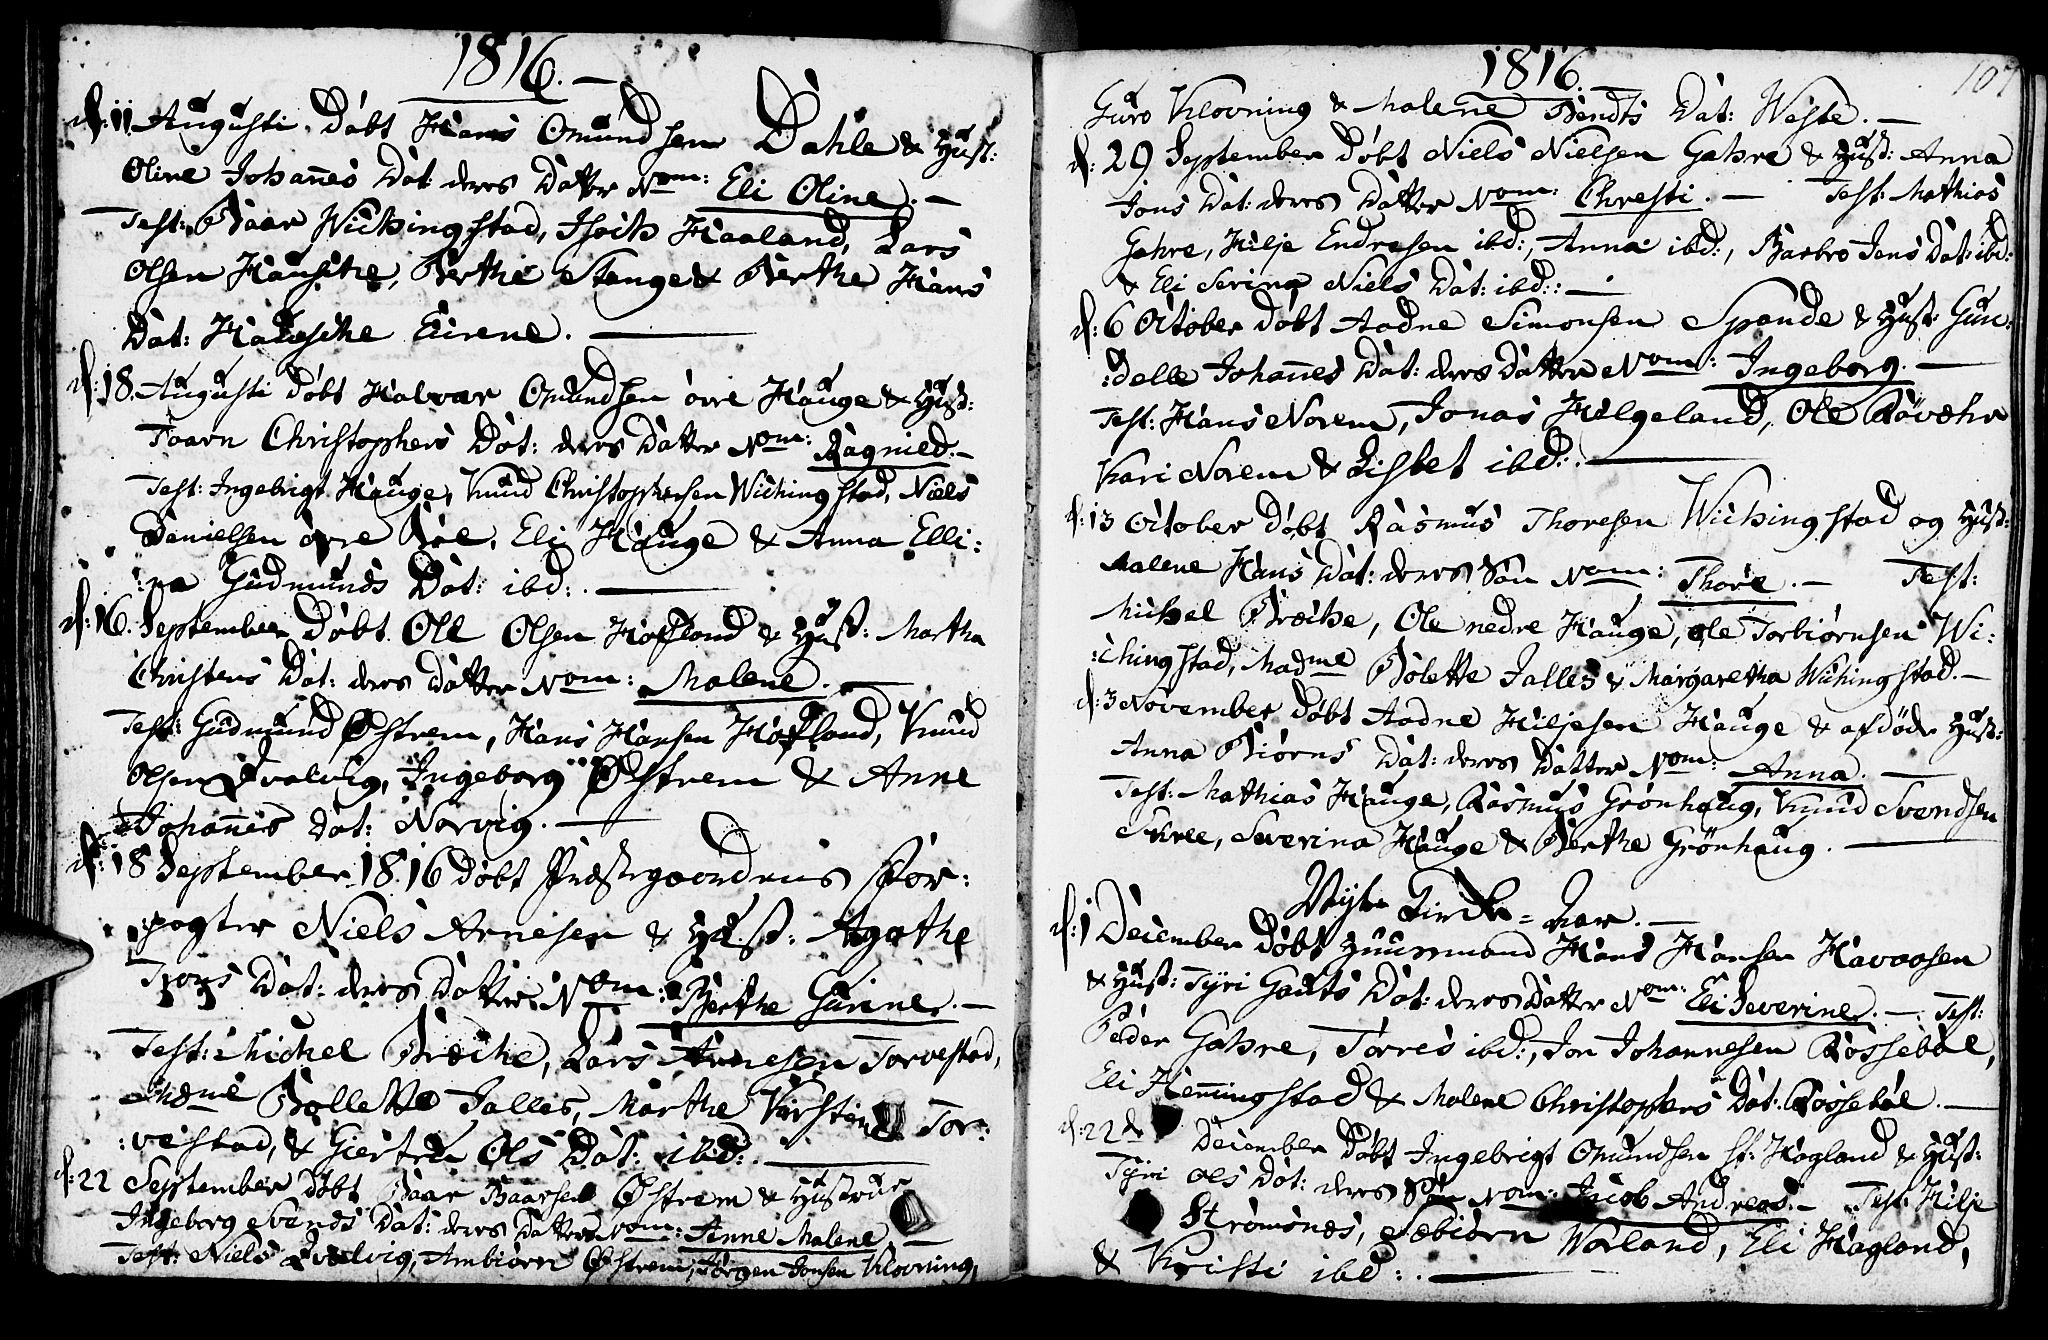 1816. —
d: 11 Augusti. døbt Hans Omundsen Dahle & Hust:
Oline Johannes Dat: deres Datter Nom: Eli Oline. —
Test: Baar Wichingstad, Isich Haaland, Lars
Olsen Hauske, Berthe Stange & Berthe Hans
Dat: Hauesche Eirene. —
d: 18. Augusti døbt Halvor Omundsen øvre Hauge & Hust:
Taarn Christophers Dat: deres Datter Nom: Ragnild. —
Test: Ingebrigt Hauge, Knud Christophersen Wichingstad, Niels
Danielsen øvre Bøe, Eli Hauge & Anna Elli:
:na Gudmunds Dat: ibd: —
d: 16. September døbt Ole Olsen Hofland & Hust: Martha
Christens Dat: deres Datter Nom: Malene. —
Test: Gudmund Østrem, Hans Hansen Hofland, Knud
Olsen Qvalvig, Ingeborg Østrem & Anne
Johannes Dat: Norvig. —
d: 18 September 1816 døbt Præstegaardens For:
:pagter Niels Arnesen & Hust: Agathe
Trons Dat: deres Datter Nom: Berthe Gurine. —
Test: Michel Bræche, Lars Arnesen Torvestad,
Madme Bollette Jalles, Marthe Kirstine Tor:
:vestad, & Giertru Ols Dat: ibd: —
d: 22 September døbt Baar Baarsen Østrem & Hustrue
Ingeborg Svends Dat: deres Datter Nom: Anne Malene. —
Test: Niels Qvalvig, Ambiørn Østrem, Jørgen Jonsen Klovning,
1816. 107
Guro Klovning & Malene Bendts Dat: Weste. —
d: 29 September døbt Niels Nielsen Gahre & Hust: Anna
Jons Dat: deres Datter Nom: Chresti. — Test: Mathias
Gahre, Hilje Endresen ibd:, Anna ibd:, Barbro Jens Dat: ibd:
& Eli Serina Niels Dat: ibd: —
d: 6 October døbt Aadne Simonsen Spande & Hust: Gun:
:delle Johannes Dat: deres Datter Nom: Ingeborg. —
Test: Hans Norem, Jonas Helgeland, Ole Røvæhr
Kari Norem & Lisbet ibd: —
d: 13 October døbt Rasmus Thoresen Wichingstad og Hust:
Malene Hans Dat: deres Søn Nom: Thore. — Test:
Michel Bræche, Ole nedre Hauge, Ole Torbiørnsen Wi:
:chingstad, Madme Bolette Jalles & Margaretha Wichingstad. —
d: 3 November døbt Aadne Hiljesen Hauge & afdøde Hust:
Anna Biørns Dat: deres Datter Nom: Anna. —
Test: Mathias Hauge, Rasmus Grønhaug, Knud Svendsen
Skree, Severina Hauge & Berthe Grönhaug. —
Nyt Kirke-Aar. —
d: 1 December døbt Huusmand Hans Hansen Havaasen
& Hust: Tyri Gauts Dat: deres Datter Nom: Eli Severine. — Test:
Peder Gahre, Torres ibd:, Jon Johannesen Røssebøe,
Eli Hemmingstad & Malene Christophers Dat: Røssebøe. —
d: 22de December døbt Ingebrigt Omundsen st: Hagland & Hust:
Tyri Ols Dat: deres Søn Nom: Jacob Andreas. — Test: Hilje
Strømsnes, Sæbiørn Vørland, Eli Hagland,
& Kristi ibd: —